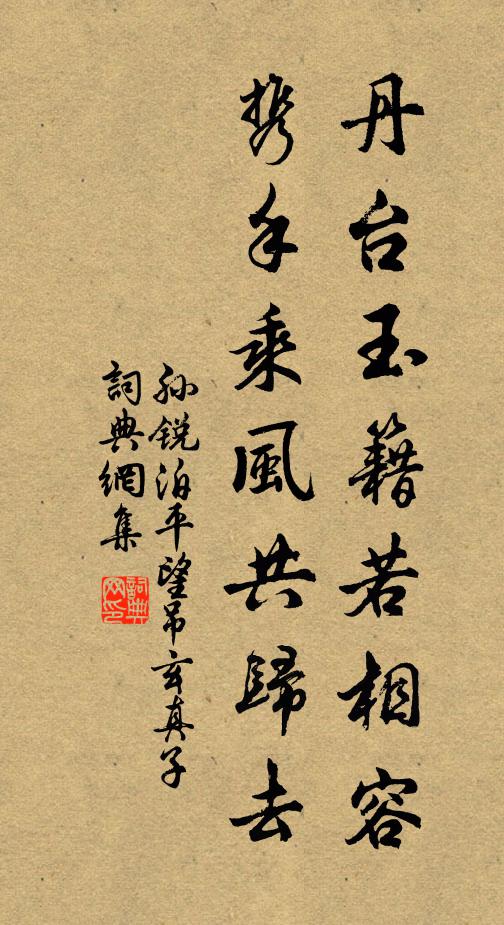 丹台玉籍若相容
携手乘風共歸去
孙锐泊平望吊玄真子
詞典網集
詞典網印